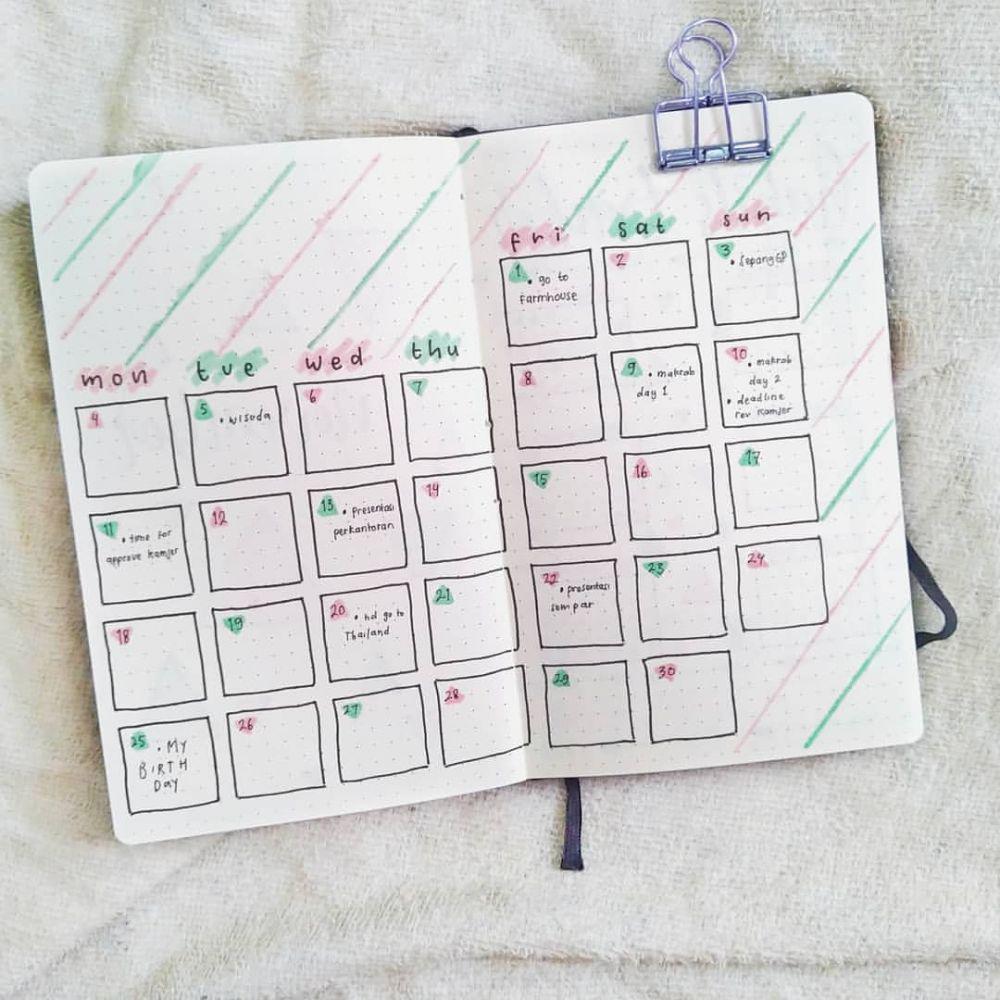 mon tue wed thu fri sat sun
1 • go to
farmhouse
2
3 • Sepang GP
4
5 • wisuda
6
7
8
9 • makrab
day 1
10 • makrab
day 2
• deadline
rev kamjer
11 • time for
approve kamjer
12
13 • presentasi
perkantoran
14
15
16
17
18
19
20 • hd go to
Thailand
21
22 • presentasi
sempar
23
24
25 • MY
BIRTH
DAY
26
27
28
29
30